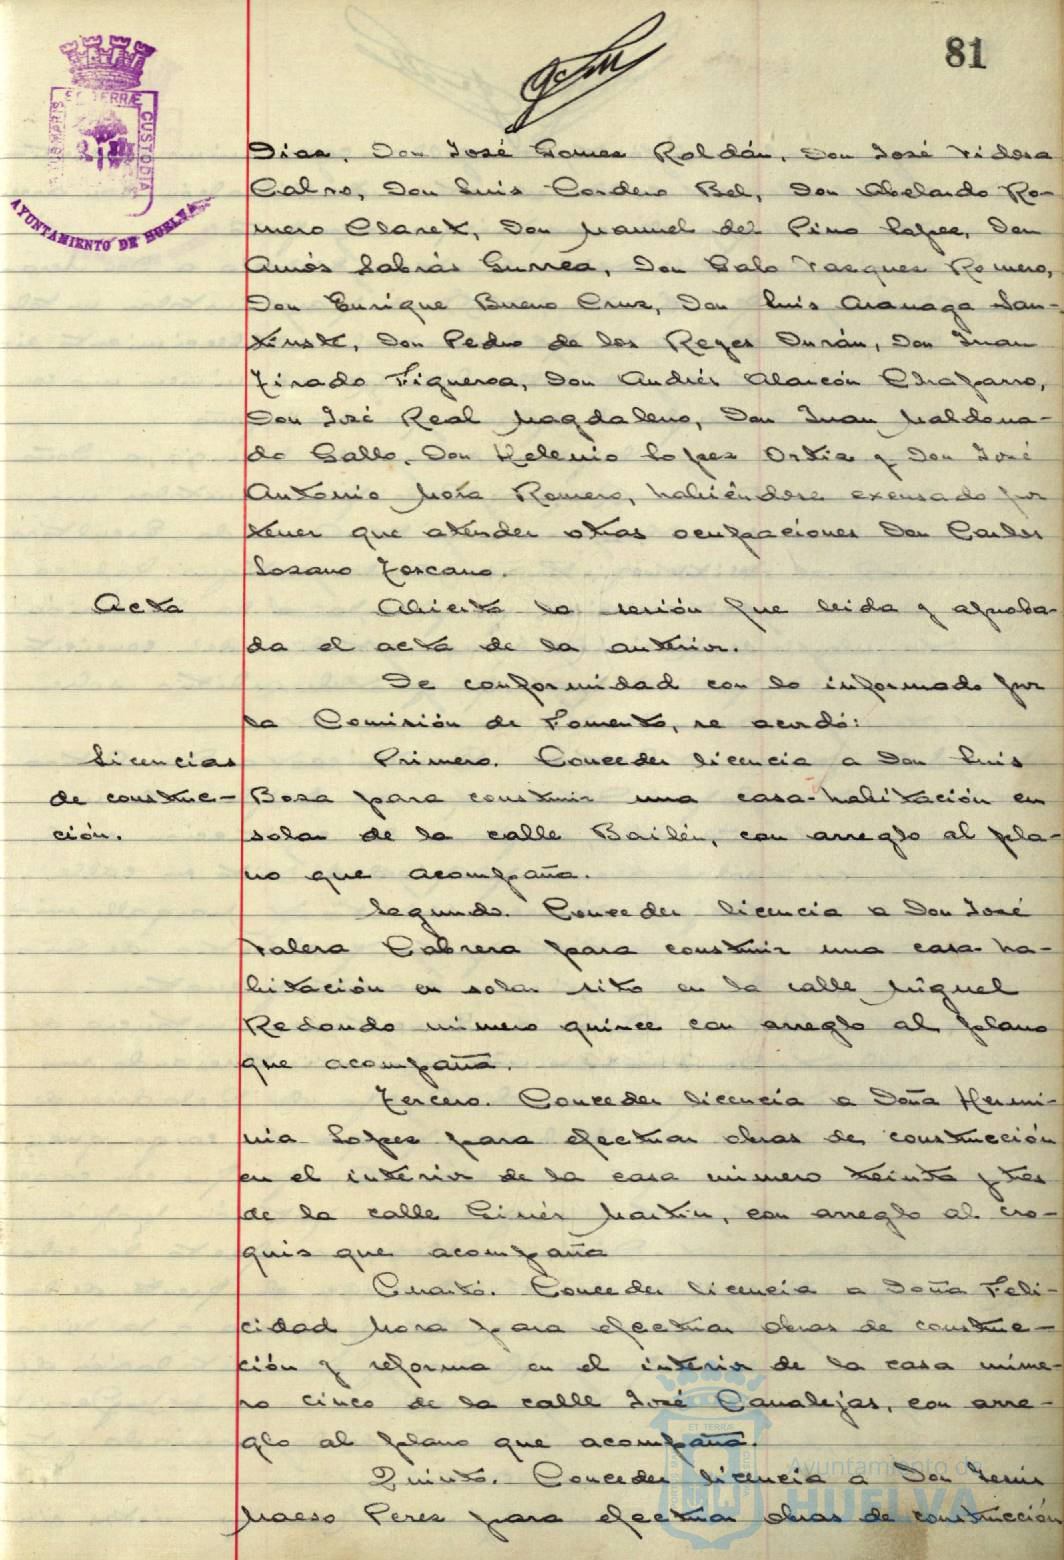 81
AYUNTAMIENTO DE HUELVA
Dias, Don José Gomez Roldán, Don José Tidosa
Calvo, Don Luis Cordero Bel, Don Abelardo Ro-
mero Clarex, Don Manuel del Pino Lopez, Don
Amós Sabrás Gurrea, Don Galo Vazquez Romero,
Don Enrique Bueno Cruz, Don Luis Aranaga San-
Don Pedro de los Reyes Durán, Don Juan
Tirado Figueroa, Don Andrés Alarcón Chaparro,
Don José Real Magdaleno, Don Juan Maldona-
do Gallo, Don Helenio Lopez Ortiz y Don José
Antonio Mora Romero, habiéndose excusado por
tener que atender otras ocupaciones Don Carlos
Lozano Toscano.
Acta
Abierta la sesión fue leida y aproba-
da el acta de la anterior.
De conformidad con lo informado por
la Comisión de Fomento, se acordó:
Licencias
de construc-
ción.
Primero. Conceder licencia a Don Luis
Boza para construir una casa-habitación en
solar de la calle Bailén, con arreglo al pla-
no que acompaña.
Segundo. Conceder licencia a Don José
Valera Cabrera para construir una casa-ha-
bitación en solar sito en la calle Miguel
Redondo número quince con arreglo al plano
que acompaña.
Tercero. Conceder licencia a Doña Hermi-
nia Lopez para efectuar obras de construcción
en el interior de la casa número treinta y tres
de la calle Ginés Martín, con arreglo al cro-
quis que acompaña
Cuarto. Conceder licencia a Doña Feli-
cidad Mora para efectuar obras de construc-
ción y reforma en el interior de la casa núme-
ro cinco de la calle José Canalejas, con arre-
glo al plano que acompaña.
Quinto. Conceder licencia a Don Jesus
Maeso Perez para efectuar obras de construcción
Ayuntamiento de
HUELVA